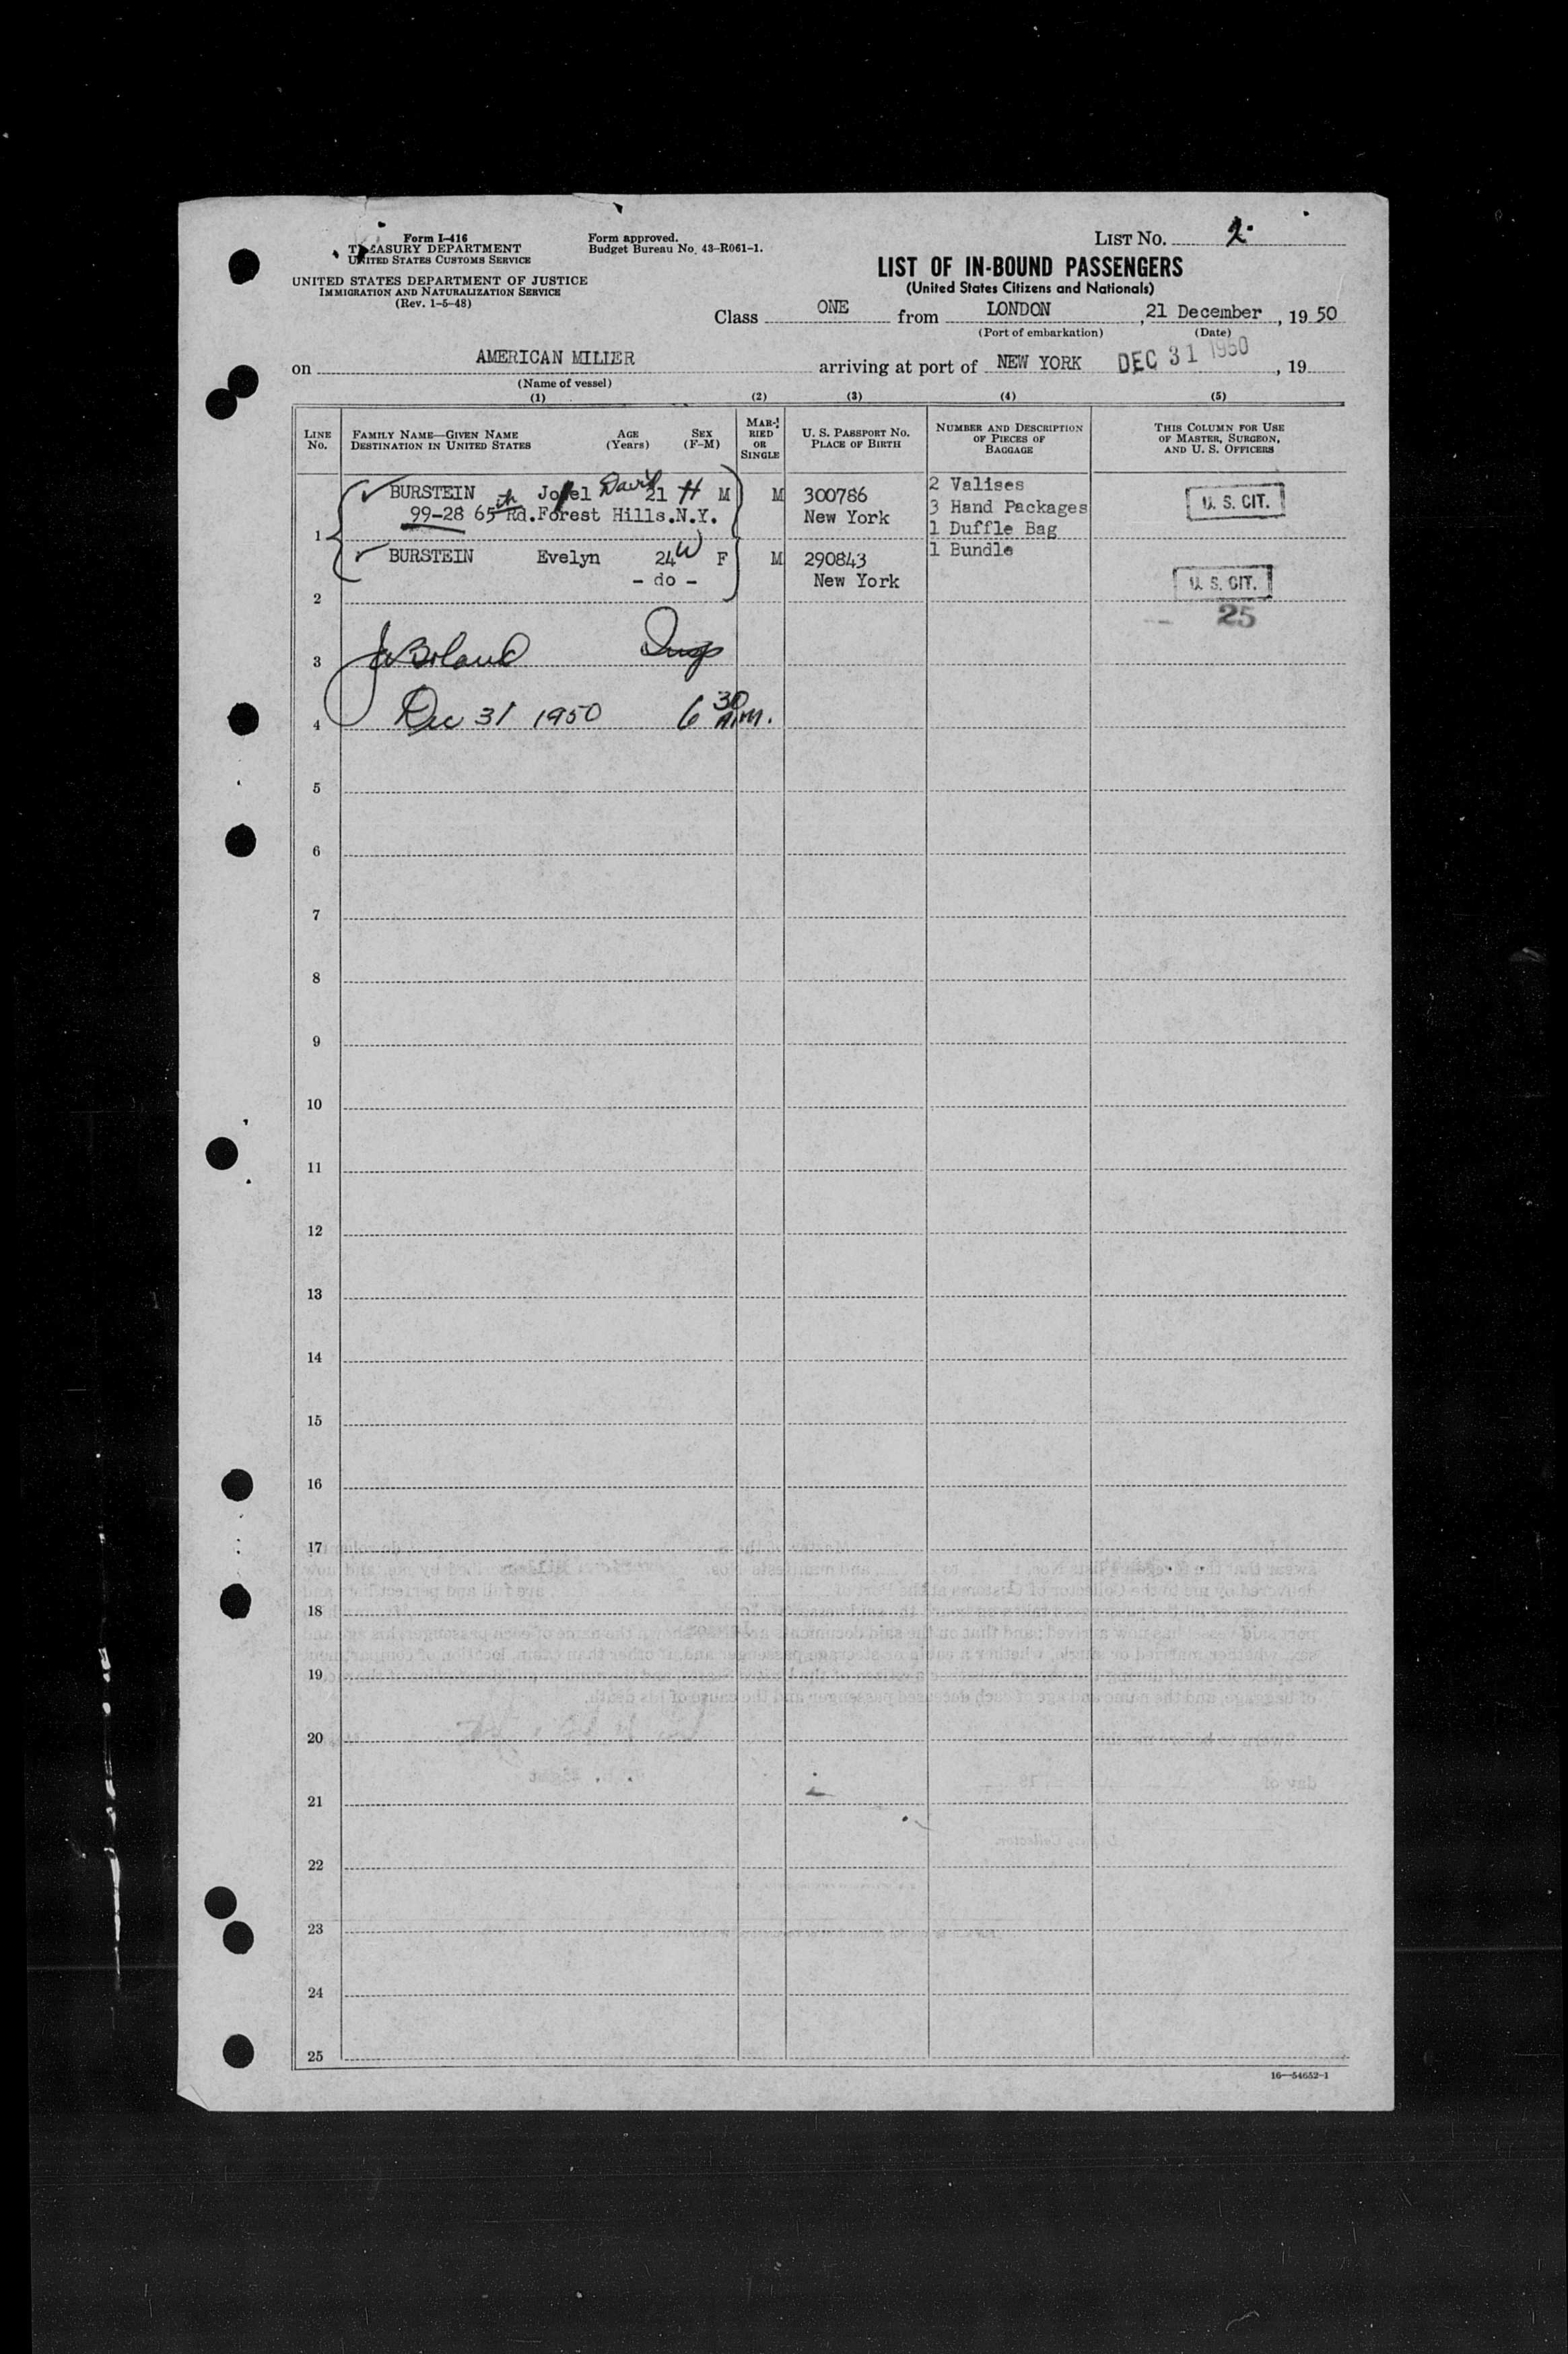 Form I-416
TREASURY DEPARTMENT
UNITED STATES CUSTOMS SERVICE
UNITED STATES DEPARTMENT OF JUSTICE
IMMIGRATION AND NATURALIZATION SERVICE
(Rev. 1-5-48)
Form approved.
Budget Bureau No. 43-R061-1.
LIST No. 2
LIST OF IN-BOUND PASSENGERS
(United States Citizens and Nationals)
Class ONE from LONDON, 21 December, 1950
(Port of embarkation) (Date)
on AMERICAN MILLER arriving at port of NEW YORK DEC 31 1950, 19
(Name of vessel)
(1) (2) (3) (4) (5)
LINE No. FAMILY NAME—GIVEN NAME DESTINATION IN UNITED STATES AGE (Years) SEX (F-M) MARRIED OR SINGLE U. S. PASSPORT NO. PLACE OF BIRTH NUMBER AND DESCRIPTION OF PIECES OF BAGGAGE THIS COLUMN FOR USE OF MASTER, SURGEON, AND U. S. OFFICERS
BURSTEIN Joel David 21 H M M 300786 2 Valises U. S. CIT.
99-28 65th Rd. Forest Hills.N.Y. New York 3 Hand Packages
1 1 Duffle Bag
BURSTEIN Evelyn 24 W F M 290843 1 Bundle
- do - New York U. S. CIT.
2
25
3 Boland Insp
4 Dec 31 1950 6 30 A.M.
5
6
7
8
9
10
11
12
13
14
15
16
17
18
19
20
21
22
23
24
25
16—54652-1